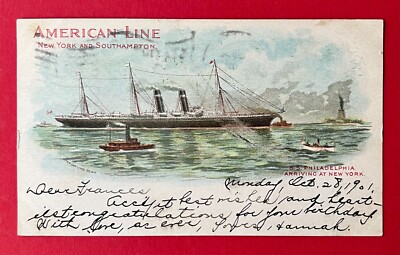 AMERICAN LINE
NEW YORK AND SOUTHAMPTON.
S.S. PHILADELPHIA
ARRIVING AT NEW YORK.
Monday Oct. 28, 1901.
Dear Frances
Accept best wishes and heart-
iest congratulations for your birthday
With love, as ever, Yours, Hannah.